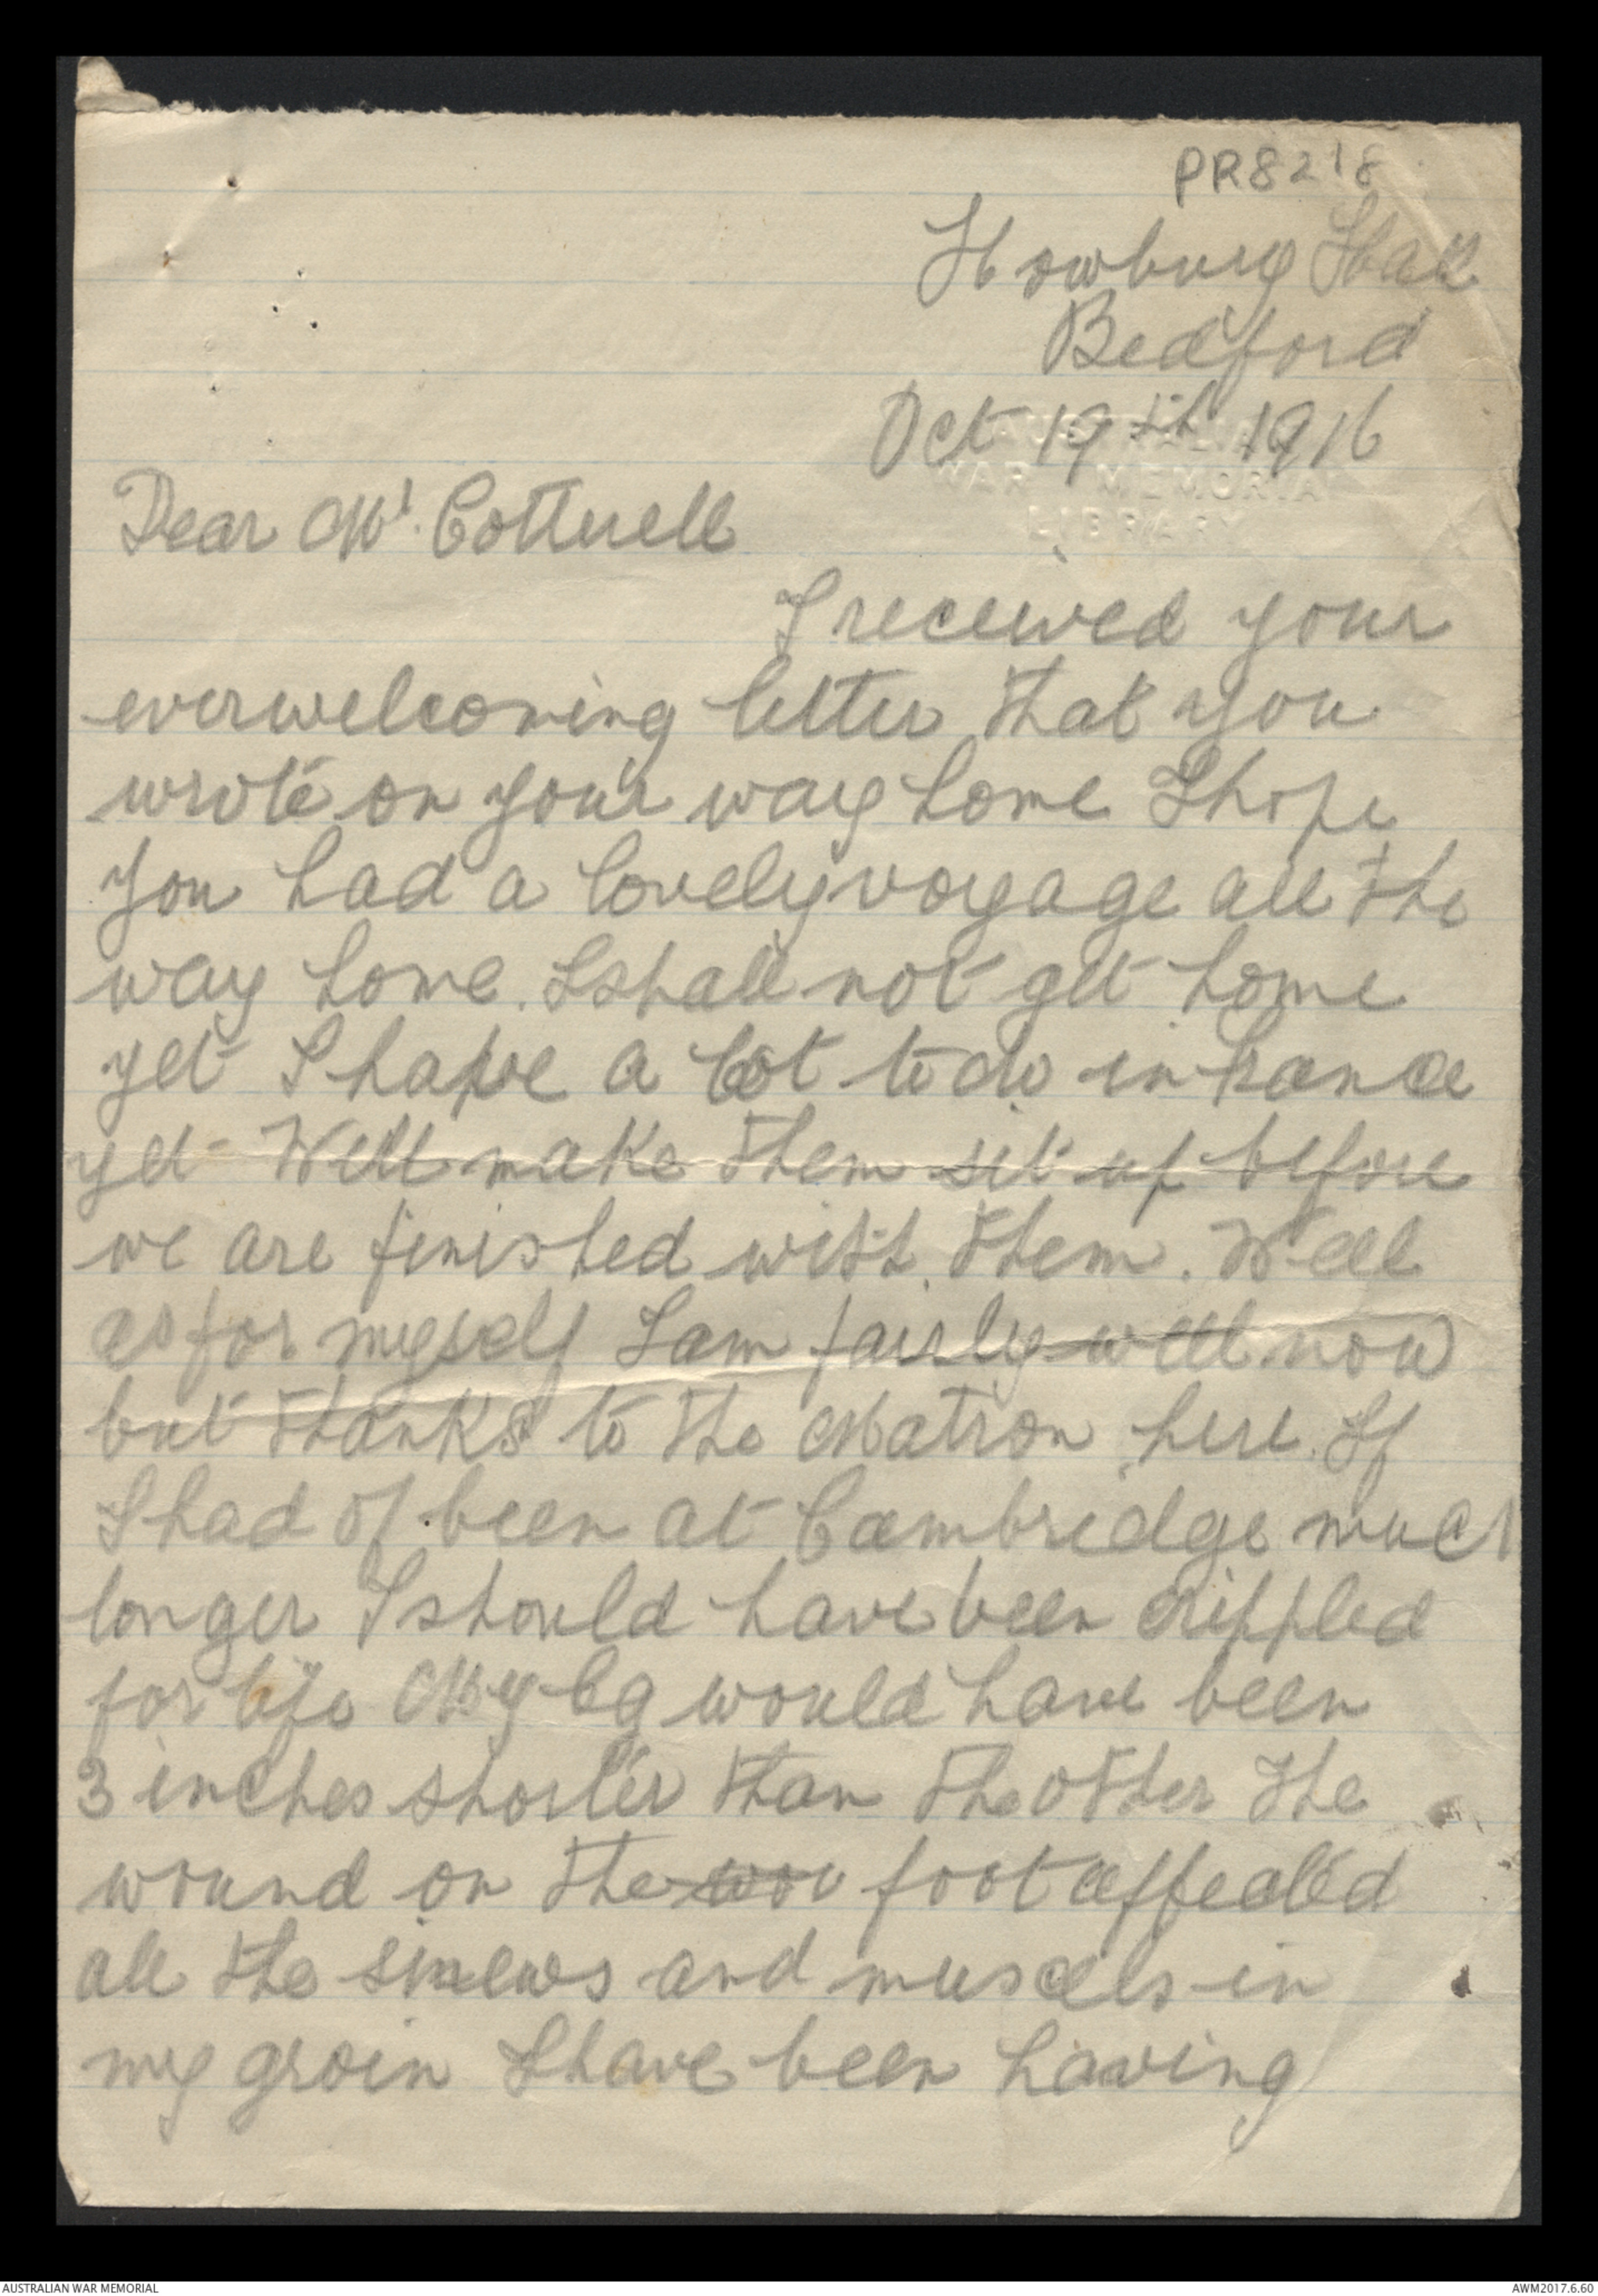 PR8218
Howbury Hall
Bedford
Oct 19th 1916
AUSTRALIAN
WAR MEMORIAL
LIBRARY
Dear Mr. Cotterell
I received your
everwelcoming letter that you
wrote on your way home I hope
you had a lovely voyage all the
way home. I shall not get home
yet I have a lot to do in France
yet Well make them sit up before
we are finished with them. Well
as for myself I am fairly well now
but thanks to the Matron here. If
I had of been at Cambridge much
longer I should have been crippled
for life My leg would have been
3 inches shorter than the other The
wound on the wou foot affected
all the sinews and muscels in
my groin I have been having
AUSTRALIAN WAR MEMORIAL
AWM2017.6.60